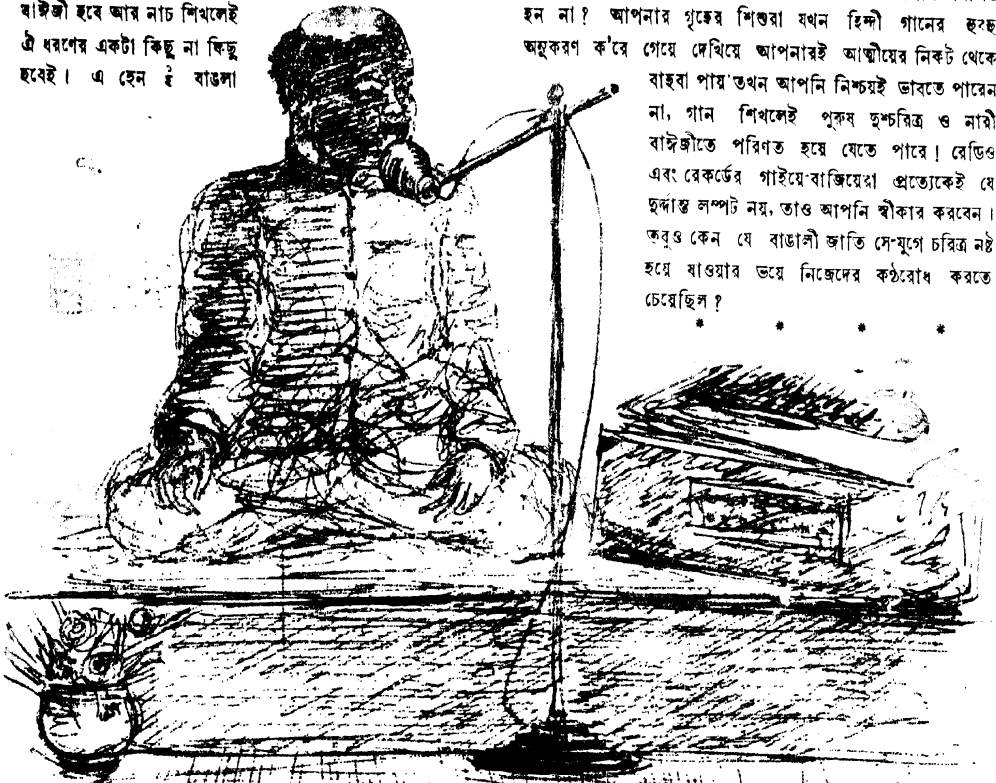 বাঈজী হবে আর নাচ শিখলেই
ঐ ধরণের একটা কিছু না কিছু
হবেই। এ হেন বাঙলা
হন না? আপনার গৃহের শিশুরা যখন হিন্দী গানের হুবহু
অনুকরণ ক'রে গেয়ে দেখিয়ে আপনারই আত্মীয়ের নিকট থেকে
বাহবা পায় তখন আপনি নিশ্চয়ই ভাবতে পারেন
না, গান শিখলেই পুরুষ দুশ্চরিত্র ও নারী
বাঈজীতে পরিণত হয়ে যেতে পারে! রেডিও
এবং রেকর্ডের গাইয়ে-বাজিয়েরা প্রত্যেকেই যে
দুর্দ্দান্ত লম্পট নয়, তাও আপনি স্বীকার করবেন।
তবুও কেন যে বাঙালী জাতি সে-যুগে চরিত্র নষ্ট
হয়ে যাওয়ার ভয়ে নিজেদের কণ্ঠরোধ করতে
চেয়েছিল?
* * * *